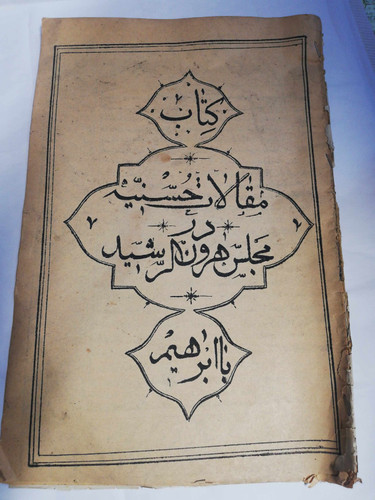 کتاب
مقالات حسنیه
در
مجلس هرون الرشید
با ابراهیم